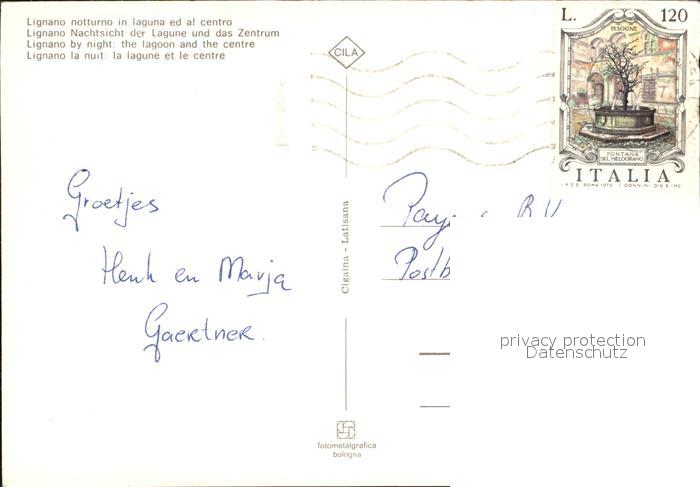 Lignano notturno in laguna ed al centro
Lignano Nachtsicht der Lagune und das Zentrum
Lignano by night: the lagoon and the centre
Lignano la nuit: la lagune et le centre
CILA
L. 120
ISSOGNE
FONTANA
DEL MELOGRANO
ITALIA
I.P.Z.S. ROMA 1979 E. DONNINI DIS. E INC.
Groetjes
Henk en Marja
Gaertner.
Cigaina - Latisana
Postb
privacy protection
Datenschutz
fotometalgrafica
bologna